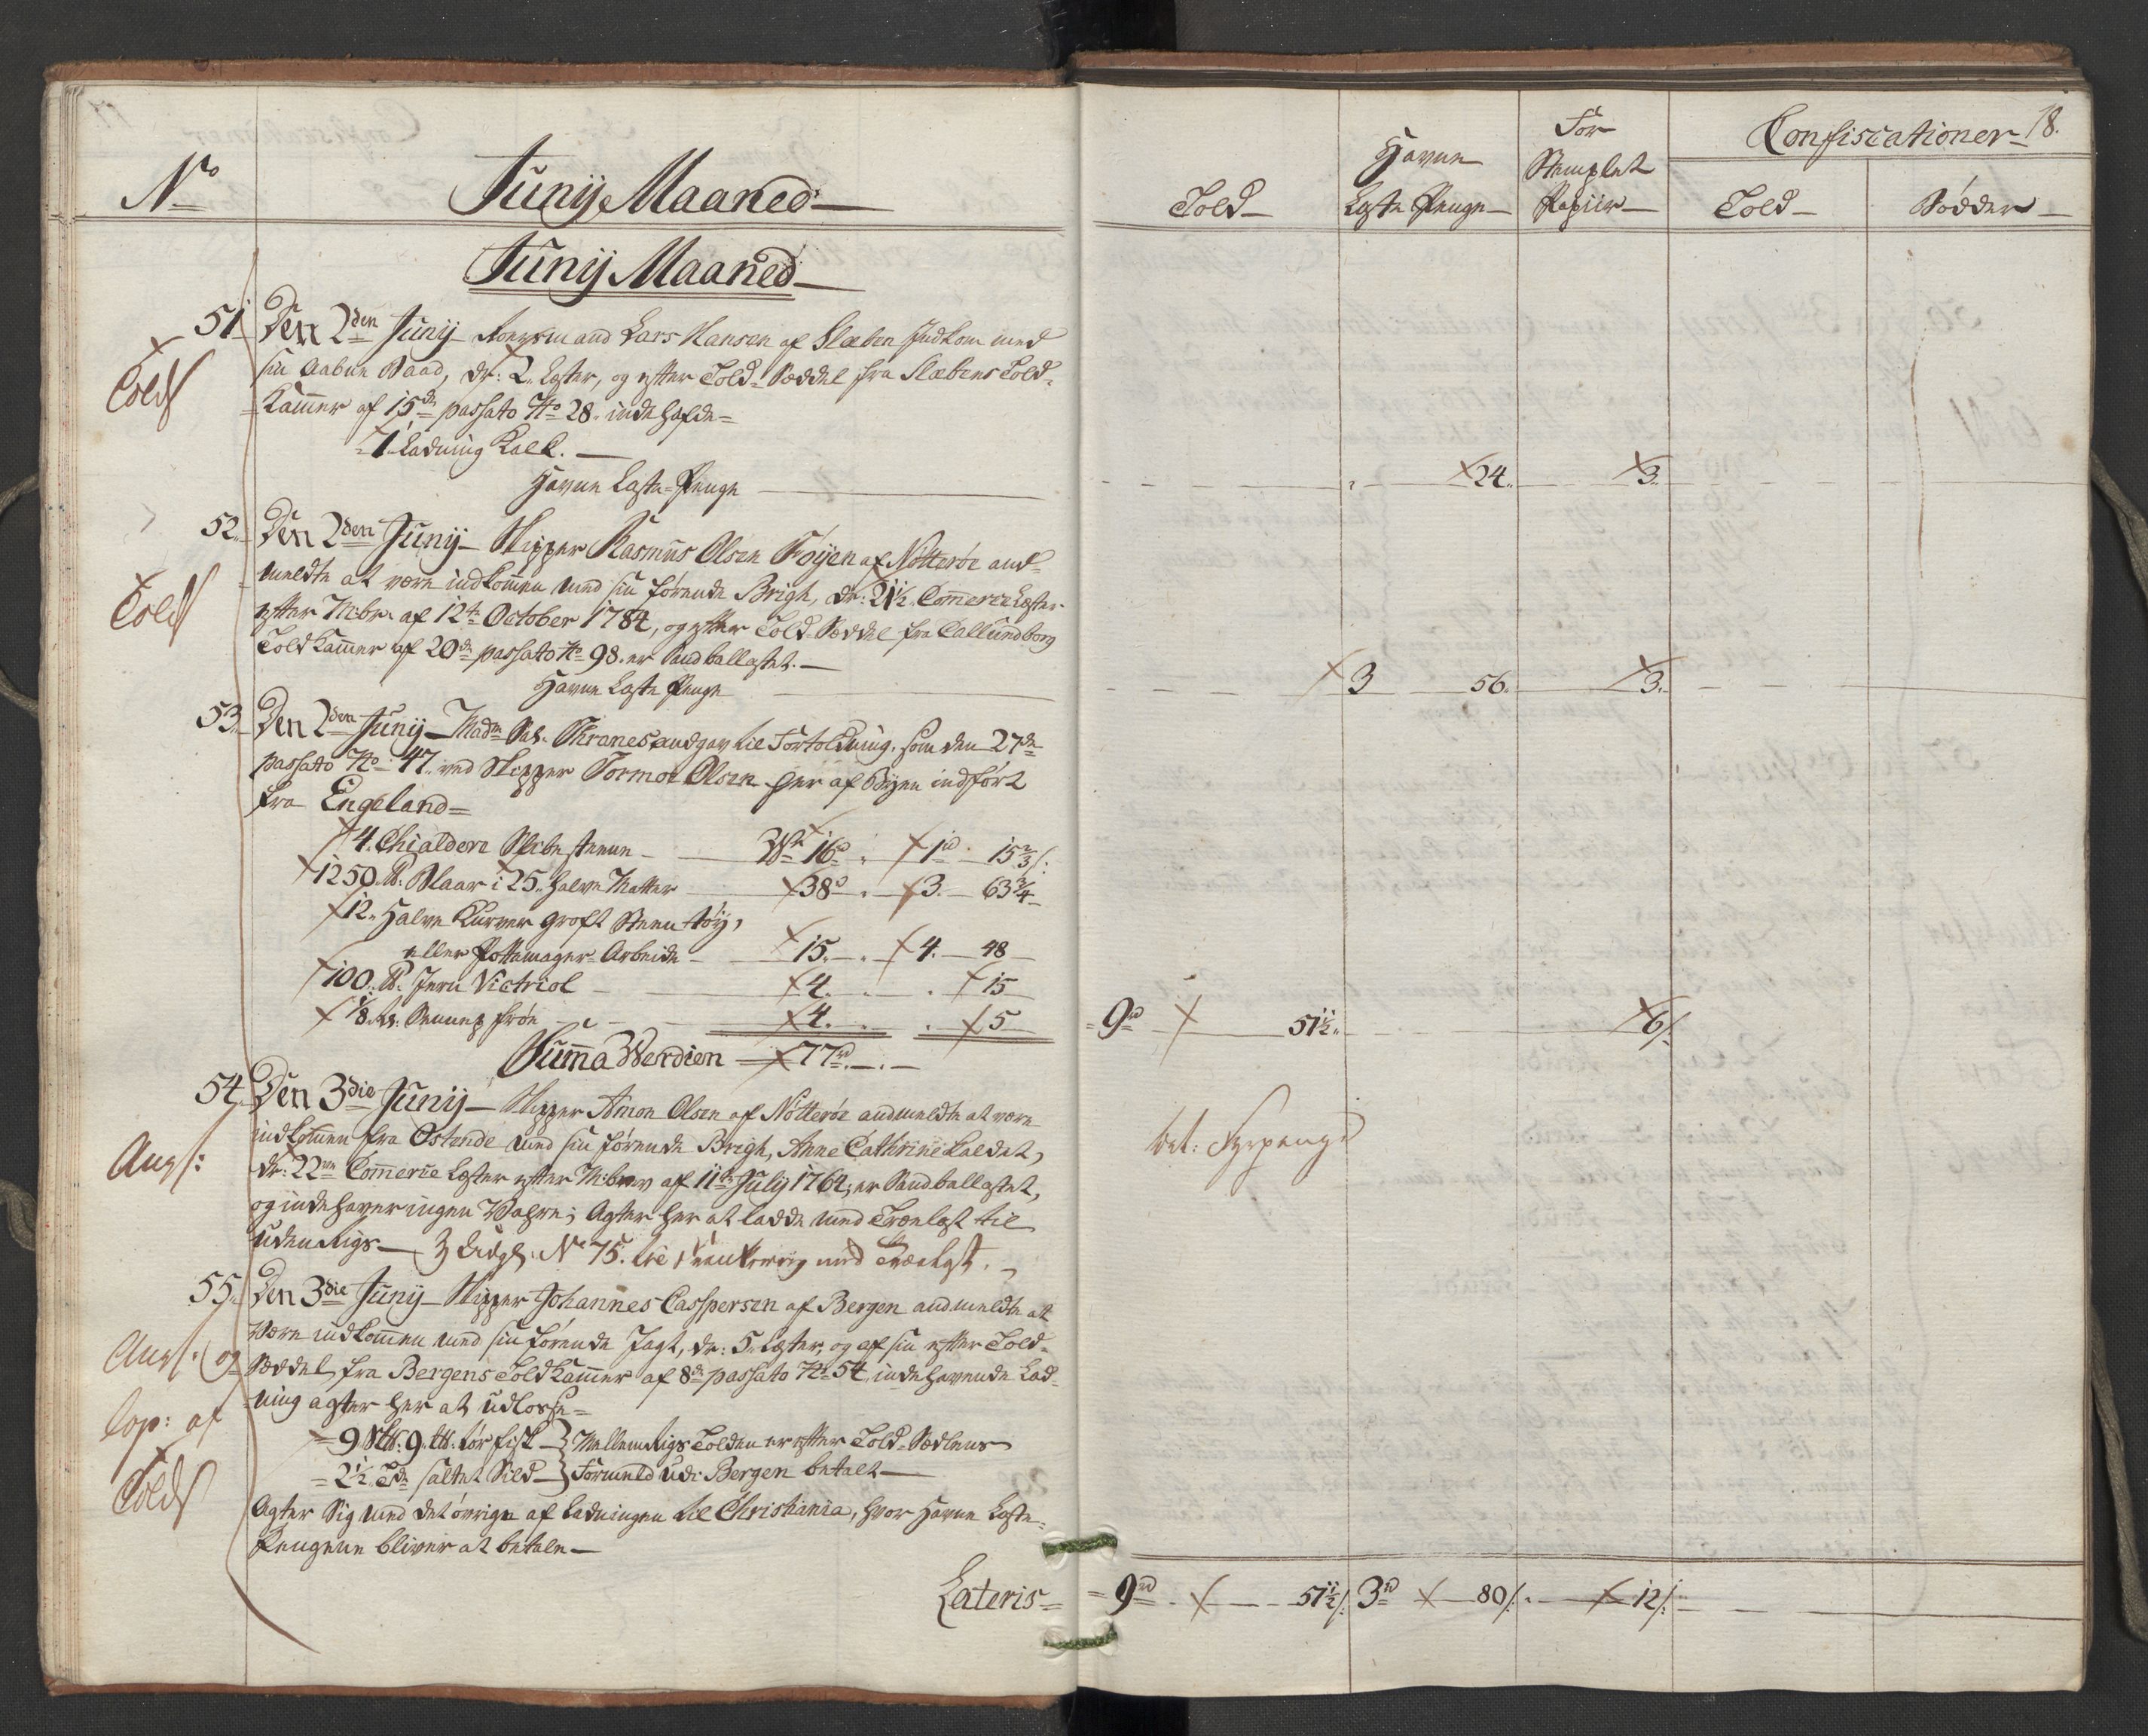 No
Junij Maaned
Junij Maaned
51. Den 2den Junij Lars Hansen af Slæben Indkom med
sin aabne Baad, dr: 2 Læster, og efter Told-Sæddel fra Slæbens Told-
Told
Kammer af 15de passato No 28. indehafde=
1 Ladning Kalk.
Havne Læste-Penge
52. Den 2den Junij Skipper Rasmus Olsen Føijen af Nøtterøe and-
meldte at være indkommen med sin førende Brigh, dr: 21½ Commerce Læster
Told
efter M:br: af 12te October 1784, og efter Told-Sæddel fra Callundborg
Told Kammer af 20de passato No 98. er Sandballastet.
Havne Læste Penge
53. Den 2den Junij Madme Sal. Thranes andgav til Fortoldning, som den 27de
passato No 47. ved Skipper Tormoe Olsen her af Byen indført
fra Engeland=
4. Chialdere Slibesteene Wste 16rd 1rd 15⅔/:
1250 lb. Blaar i 25 halve Matter 38rd 3. 63¾
12. Halve Kurver groft Steentøij,
eller Pottemager-Arbeide 15. 4. 48
100 lb. Jern Victriol 4. 15
⅛ Sennep frøe 4. 5
Summa Werdien 77rd
54. Den 3die Junij Skipper Amon Olsen af Nøtterøe andmeldte at være
indkommen fra Ostende med sin førende Brigh, Anne Cathrine kaldet,
Ang/:
dr: 22 Commerce Læster efter M:brev af 11te Julij 1764; er Sandballastet,
og indehaver ingen Wahre; Agter her at ladde med Trælast til
udenrigs No 75. med Trælast.
55. Den 3die Junij Skipper Johannes Casspersen af Bergen andmeldte at
være indkommen med sin førende Jagt, dr: 5 Læster, og af sin efter Told-
Ang/: og
Sæddel fra Bergens Told Kammer af 8de passato No 54. indehavende Lad-
ning agter her at udlosse=
Cop: af
=9 9. tørfisk } Mellemrigs Tolden er efter Told-Sedlens
=2½ Tdr saltet Sild } Formeld udi Bergen betalt
Told
Agter Sig med det øvrige af ladningen til Christiania, hvor Havne Læste-
Pengene bliver at betale
Lateris=
18.
Told
Havne Læste Penge
For Stemplet Papiir
Confiscationer
Told
Bødder
24. 3.
3 56. 3.
=9rd 51½. 6/:
bet: Fyrpenge
=9rd 51½/: 3rd 80/: 12/: